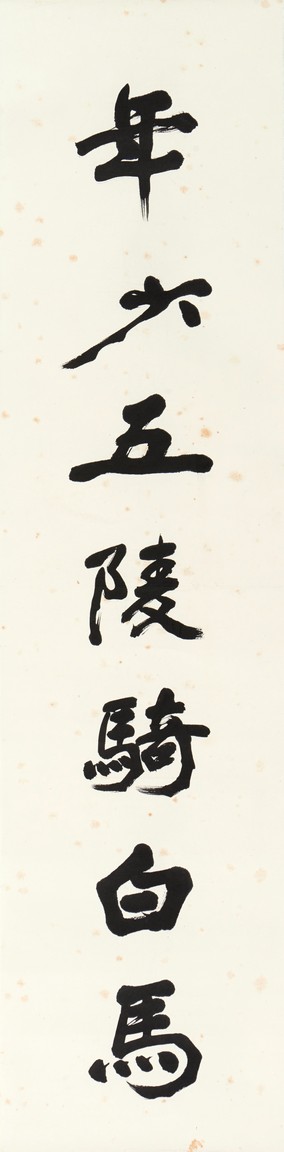 年少五陵騎白馬